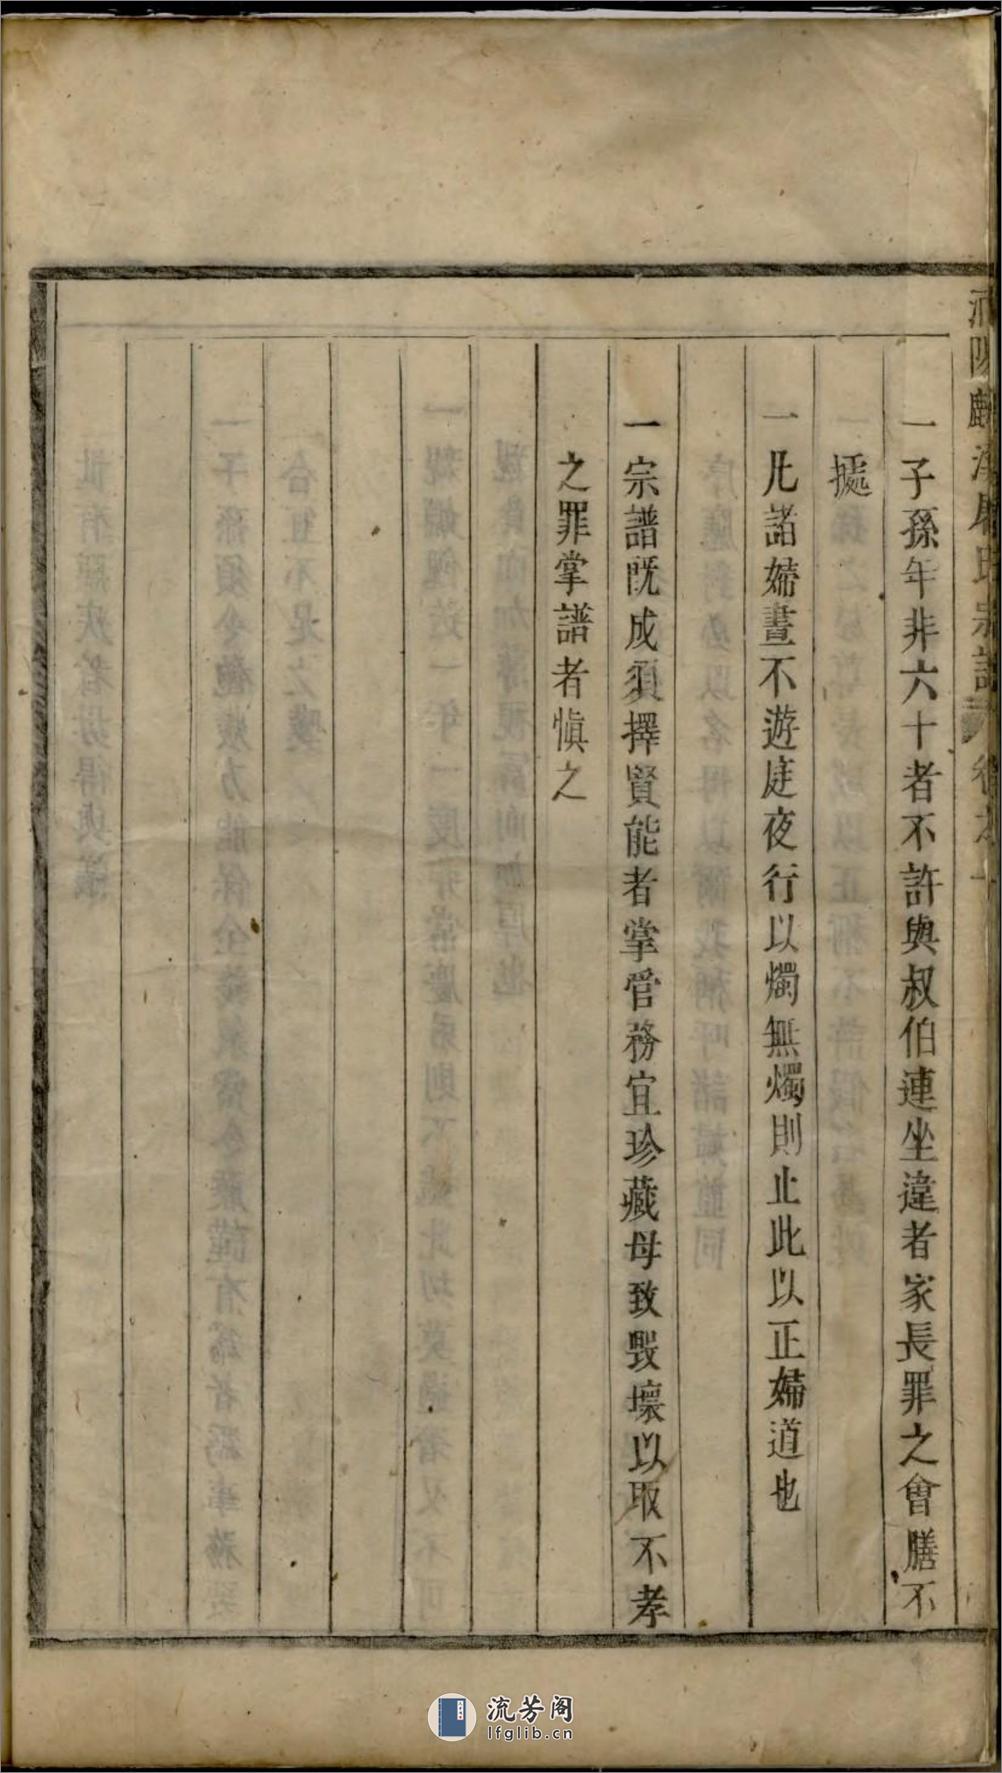 一子孫年非六十者不許與叔伯連坐違者家長罪之會膳不
據
一凡諸婦晝不遊庭夜行以燭無燭則止此以正婦道也
一宗譜既成須擇賢能者掌管務宜珍藏毋致毀壞以取不孝
之罪掌譜者慎之
流芳阁
lfglib.cn